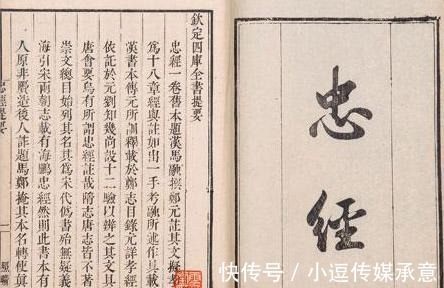 忠經
欽定四庫全書提要
忠經一卷舊本題漢馬融撰鄭元註其文擬孝
為十八章經與註如出一手考融所述作具載
漢書本傳元所訓釋載於鄭志目錄尤詳孝經
依託於元劉知幾尚設十二驗以辨之其文具
唐會要烏有所謂忠經註哉隋志唐志皆不著
崇文總目始列其名其為宋代偽書殆無疑義
海引宋兩朝志載有海鵬忠經然則此書本有
人原非贗造後人詐題馬鄭掩其本名轉使真
忠經提要
一
快传号 / 小逗传媒承意